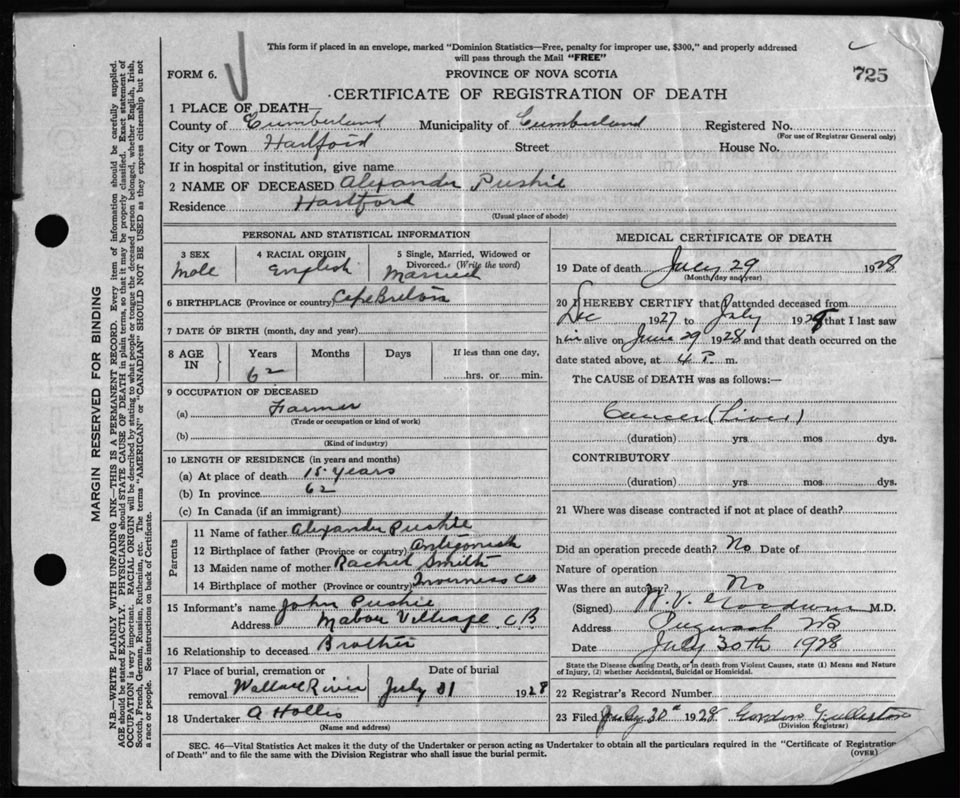 This form if placed in an envelope, marked "Dominion Statistics—Free, penalty for improper use, $300," and properly addressed
will pass through the Mail "FREE"
FORM 6.
PROVINCE OF NOVA SCOTIA
725
CERTIFICATE OF REGISTRATION OF DEATH
1 PLACE OF DEATH—
County of Cumberland Municipality of Cumberland Registered No.
(For use of Registrar General only)
City or Town Hartford Street House No.
If in hospital or institution, give name
2 NAME OF DECEASED Alexander Pushie
Residence Hartford
(Usual place of abode)
PERSONAL AND STATISTICAL INFORMATION
3 SEX 4 RACIAL ORIGIN 5 Single, Married, Widowed or
Divorced. (Write the word)
Male English Married
6 BIRTHPLACE (Province or country) Cape Breton
7 DATE OF BIRTH (month, day and year)
8 AGE IN Years Months Days If less than one day,
62 hrs. or min.
9 OCCUPATION OF DECEASED
(a) Farmer
(Trade or occupation or kind of work)
(b)
(Kind of industry)
10 LENGTH OF RESIDENCE (in years and months)
(a) At place of death 15 years
(b) In province 62
(c) In Canada (if an immigrant)
Parents
11 Name of father Alexander Pushie
12 Birthplace of father (Province or country) Antigonish
13 Maiden name of mother Rachel Smith
14 Birthplace of mother (Province or country) Inverness Co
15 Informant's name John Pushie
Address Mabou Village C B
16 Relationship to deceased Brother
17 Place of burial, cremation or Date of burial
removal Wallace River July 31 1928
18 Undertaker A Hollis
(Name and address)
MEDICAL CERTIFICATE OF DEATH
19 Date of death July 29 1928
(Month, day and year)
20 I HEREBY CERTIFY that I attended deceased from
Dec 1927 to July 1928 that I last saw
him alive on June 29 1928 and that death occurred on the
date stated above, at 4 P. m.
The CAUSE of DEATH was as follows:—
Cancer (Liver)
(duration) yrs. mos. dys.
CONTRIBUTORY
(duration) yrs. mos. dys.
21 Where was disease contracted if not at place of death?
Did an operation precede death? No Date of
Nature of operation
Was there an autopsy? No
(Signed) Goodwin M.D.
Address Pugwash NS
Date July 30th 1928
State the Disease causing Death, or in death from Violent Causes, state (1) Means and Nature
of Injury, (2) whether Accidental, Suicidal or Homicidal.
22 Registrar's Record Number
23 Filed July 30th 1928 Gordon Fullerton
(Division Registrar)
SEC. 46—Vital Statistics Act makes it the duty of the Undertaker or person acting as Undertaker to obtain all the particulars required in the "Certificate of Registration
of Death" and to file the same with the Division Registrar who shall issue the burial permit.
(OVER)
MARGIN RESERVED FOR BINDING
N.B.—WRITE PLAINLY WITH UNFADING INK—THIS IS A PERMANENT RECORD. Every item of information should be carefully supplied.
AGE should be stated EXACTLY. PHYSICIANS should STATE CAUSE OF DEATH in plain terms, so that it may be properly classified. Exact statement of
OCCUPATION is very important. RACIAL ORIGIN will be described by stating to what people or tongue the deceased person belonged, whether English, Irish,
Scotch, French, German, Russian, Ruthenian, etc. The terms "AMERICAN" or "CANADIAN" SHOULD NOT BE USED as they express citizenship but not
a race or people. See instructions on back of Certificate.